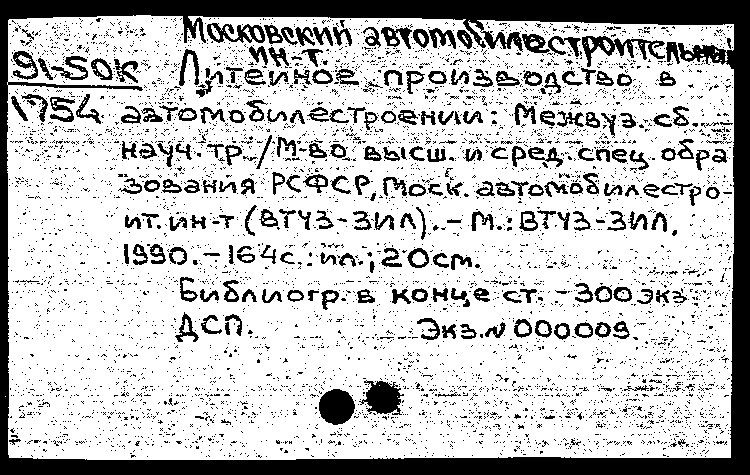 Московский автомобилестроительный
ин-т.
91-50К
1754
Литейное производство в
автомобилестроении: Межвуз. сб.
науч. тр. /М-во высш. и сред. спец. обра
зования РСФСР, Моск. автомобилестро-
ит. ин-т (ВТУЗ-ЗИЛ). – М.: ВТУЗ-ЗИЛ,
1990. – 164с.: ил.; 20см.
Библиогр. в конце ст. – 300 экз.
ДСП. Экз. N 000009.